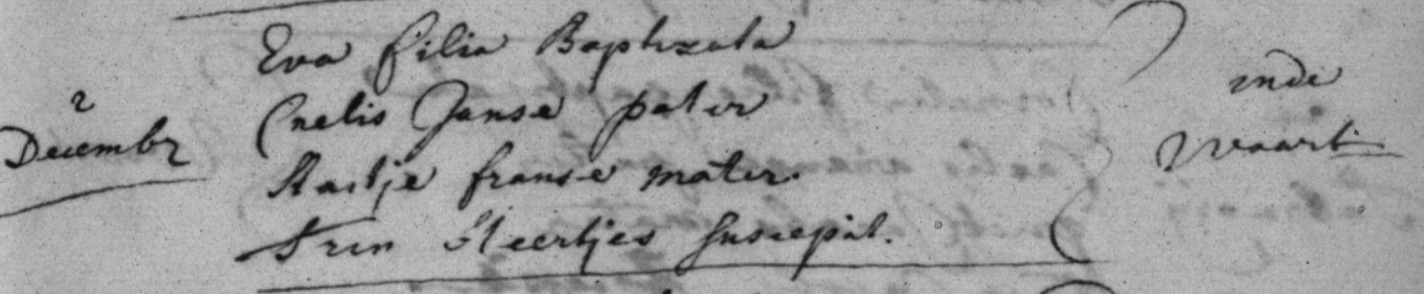 2
Decembr
Eva filia Baptizata
Cnelis Janse pater
Aaltje franse mater.
Trin Steertjes suscepit.
inde
Waart